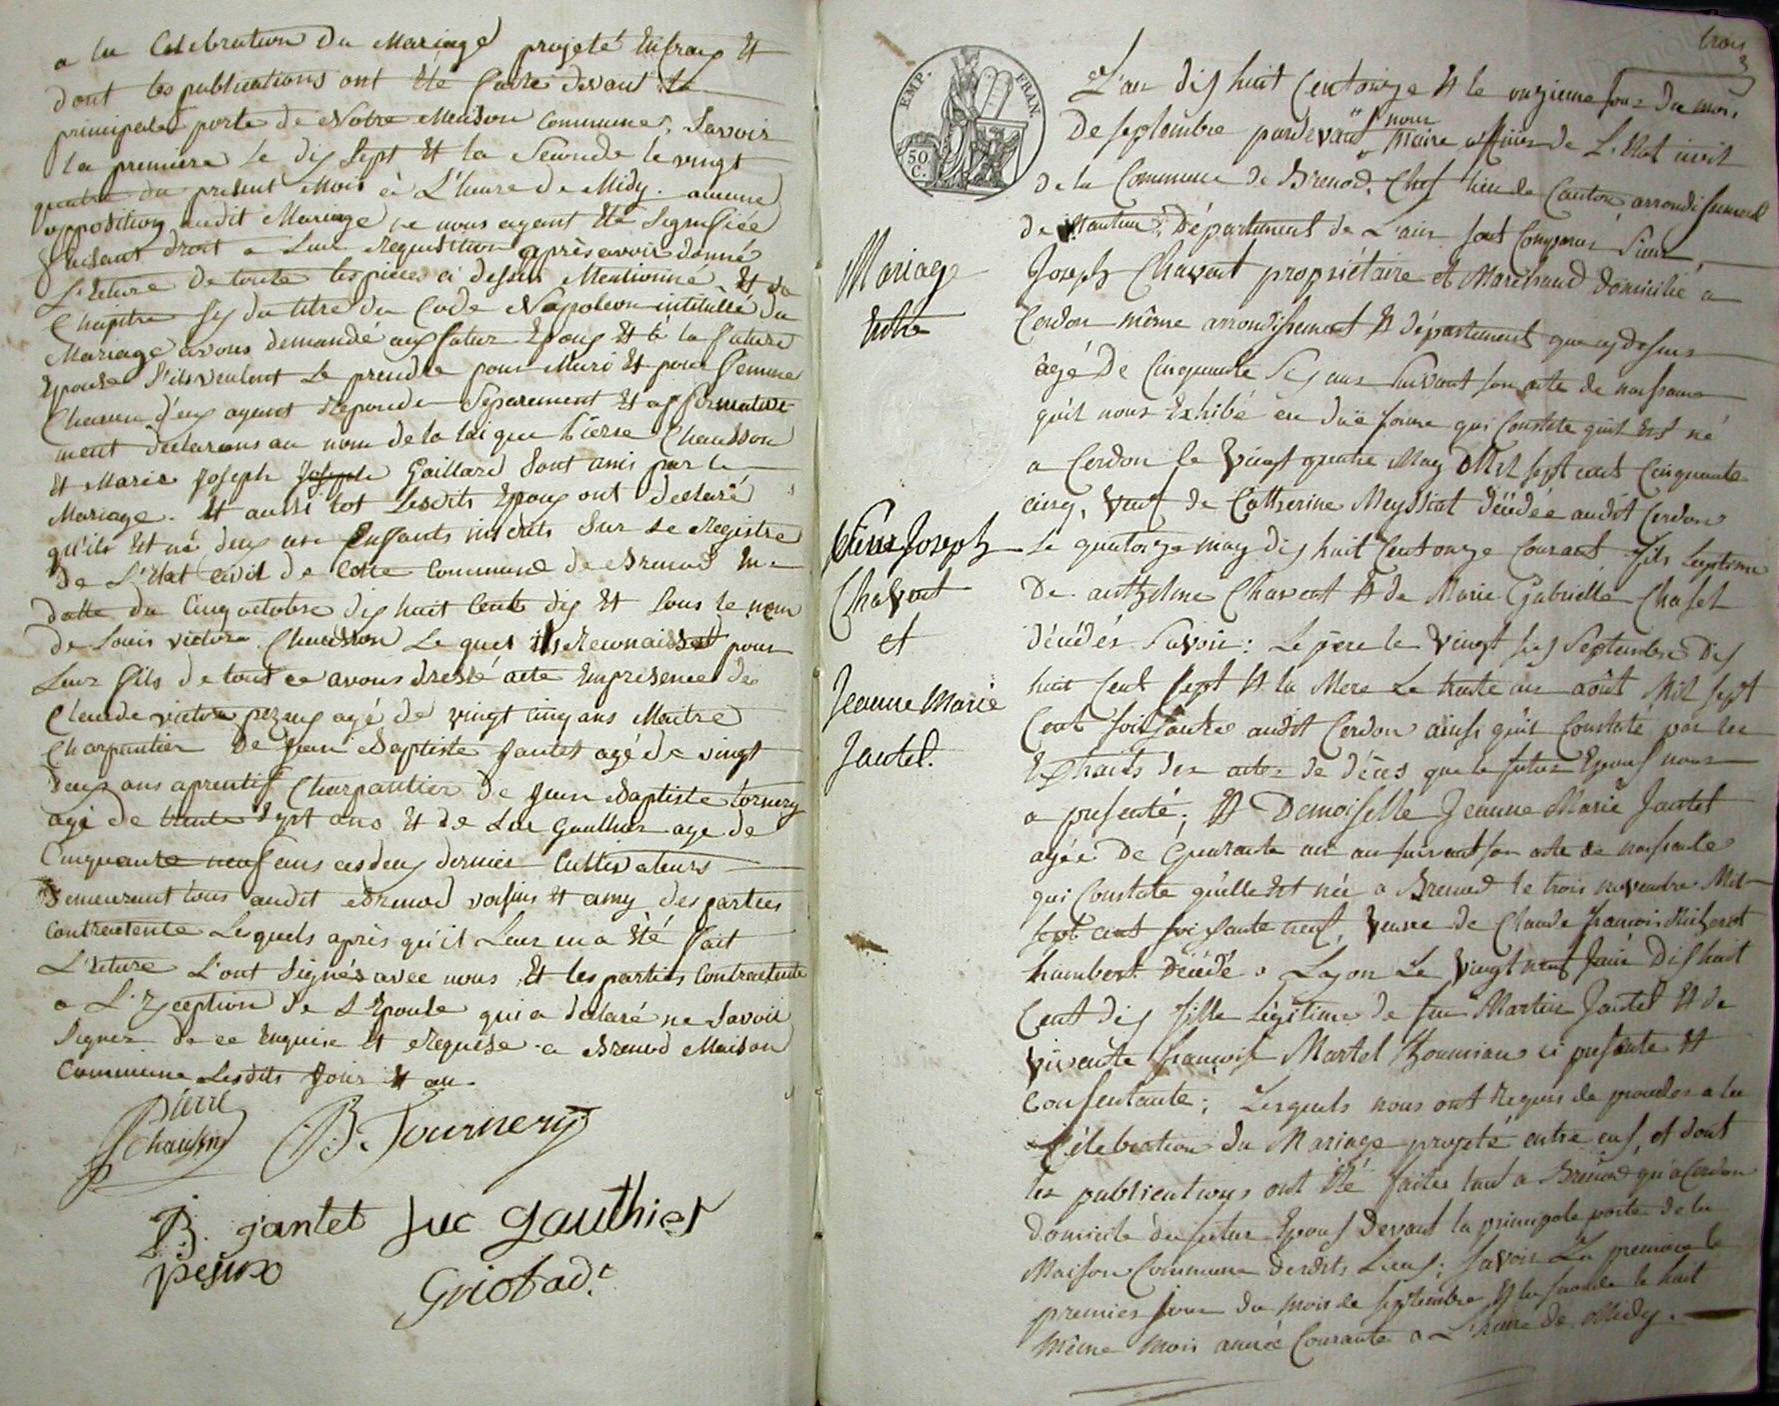 a la Celebration du Mariage projeté entraux et
dont les publications ont été faite devant la
principale porte de Notre Maison Commune, Savoir
la premiere le dix Sept et la Seconde le vingt
quatre du present Mois à L'heure de Midy. aucune
opposition audit Mariage ne nous ayant été Signifiée
faisant droit a Leur Requisition après avoir donné
L'ecture de toute les pièces ci dessus Mentionné, et du
Chapitre six du titre du Code Napoleon intitullé du
Mariage avons demandé aux futur Epoux et à la future
Epouse s'ils veulent se prendre pour Mari et pour femme
Chacun d'eux ayant Repondu Séparement et affirmative
ment declarons au nom de la loi que Pierre Chausson
et Marie Joseph Joseph Gaillard Sont unis par le
Mariage. et aussi tot Lesdits Epoux ont declaré
qu'ils est né deux un Enfants inscrits Sur le Registre
de L'Etat civil de Cette Commune de Brenod en
datte du Cinq octobre dix huit Cent dix et Sous le nom
de Louis victore Chausson Le quel ils Reconnaissent pour
Leur fils de tout ce avons dressé acte En presence de
Claude victore pezeux agé de vingt cinq ans Maitre
Charpentier de Jean Baptiste Jantet agé de vingt
deux ans aprentif Charpentier de Jean Baptiste tornery
agé de trente Sept ans et de Luc Gauthier agé de
Cinquante neuf ans ces deux dernier Cultivateurs
Demeurant tous audit Brenod voisins et amy des parties
Contractente Lesquels après qu'il Leur en a été fait
L'ecture L'ont Signés avec nous et les parties Contractente
a L'Exception de L'Epouse qui a déclaré ne Savoir
Signer de ce Enquise et Requise a Brenod Maison
Commune Lesdits Jour et an.
Pierre
Chausson
B. Tournery
B. jantet Luc Gauthier
pesux
Griot adt
trois
3
EMP. FRAN.
50 C.
L'an dix huit Cent onze et le onzieme jour du mois
De septembre pardevant nous Maire officier de L'Etat civil
de la Commune de Brenod, Chef lieu de Canton arrondissement
de Nantua, Département de L'ain sont Comparus Sieur
Mariage
Entre
Pierre Joseph
Chavent
et
Jeanne Marie
Jantet.
Joseph Chavent propriétaire et Marchand domicilié a
Cerdon même arrondissement et département que cy dessus
âgé De Cinquante Six ans Suivant son acte de naissance
qu'il nous Exhibé en due forme qui Constate qu'il est né
a Cerdon le Vingt quatre May Mil sept cent Cinquante
cinq, Veuf de Catherine Meyssiat décédée audit Cerdon
Le quatorze may dix huit Cent onze Courant fils Legitime
De anthelme Chavent et de Marie Gabrielle Chafel
décédés Savoir: Le père le Vingt six Septembre Dix
huit Cent sept et la Mere Le trente un août Mil sept
Cent soixante audit Cerdon ainsi qu'il Constaté par les
Extraits des actes de décès que le futur Epoux nous
a présenté; et Demoiselle Jeanne Marie Jantet
agée De Quarante un an suivant son acte de naissance
qui Constate qu'elle est née a Brenod le trois novembre Mil
sept cent soixante neuf, Veuve de Claude françois
humbert Décédé a Lyon Le Vingt neuf Dix huit
Cent dix fille Légitime de feu Martin Jantet et de
Vivante françoise Martel ci présente et
Consentante; Lesquels nous ont Requis de proceder a la
Célébration du Mariage projeté entre eux, et dont
les publications ont été faites tant a Brenod qu'a Cerdon
domicile du futur Epoux Devant la principale porte de la
Maison Commune desdits Lieux; Savoir La premiere le
premier jour du mois de Septembre et la seconde le huit
même mois année Courante a L'heure de Midy.